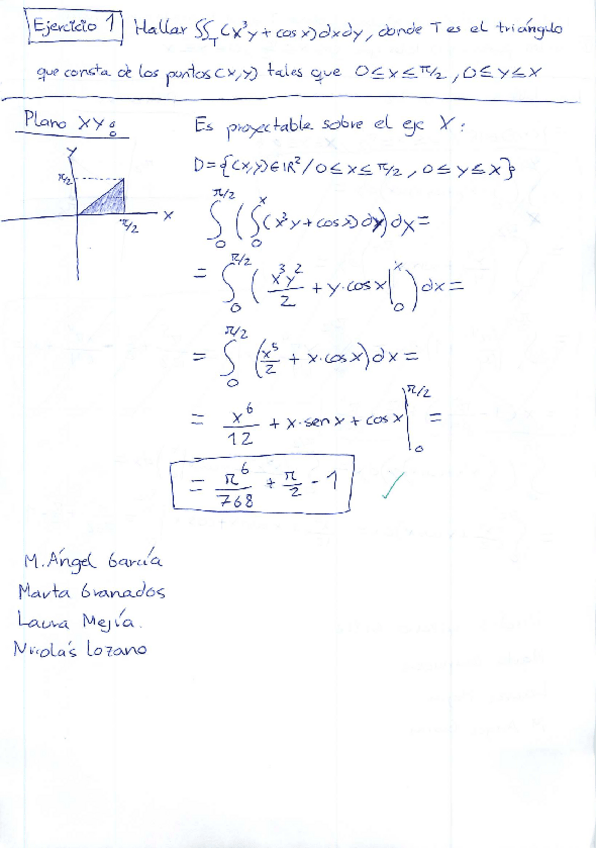 Ejercicio 1 Hallar ∬_T (x³y + cos x) dx dy, donde T es el triángulo
que consta de los puntos (x,y) tales que 0 ≤ x ≤ π/2, 0 ≤ y ≤ x
Plano XY:
Es proyectable sobre el eje X:
y
π/2
x
π/2
D = {(x,y) ∈ ℝ² / 0 ≤ x ≤ π/2, 0 ≤ y ≤ x};
∫_0^{π/2} (∫_0^x (x³y + cos x) dy) dx =
= ∫_0^{π/2} (x³y²/2 + y·cos x |_0^x) dx =
= ∫_0^{π/2} (x⁵/2 + x·cos x) dx =
= x⁶/12 + x·sen x + cos x |_0^{π/2} =
= π⁶/768 + π/2 - 1 ✓
M. Ángel García
Marta Granados
Laura Mejía.
Nicolás Lozano